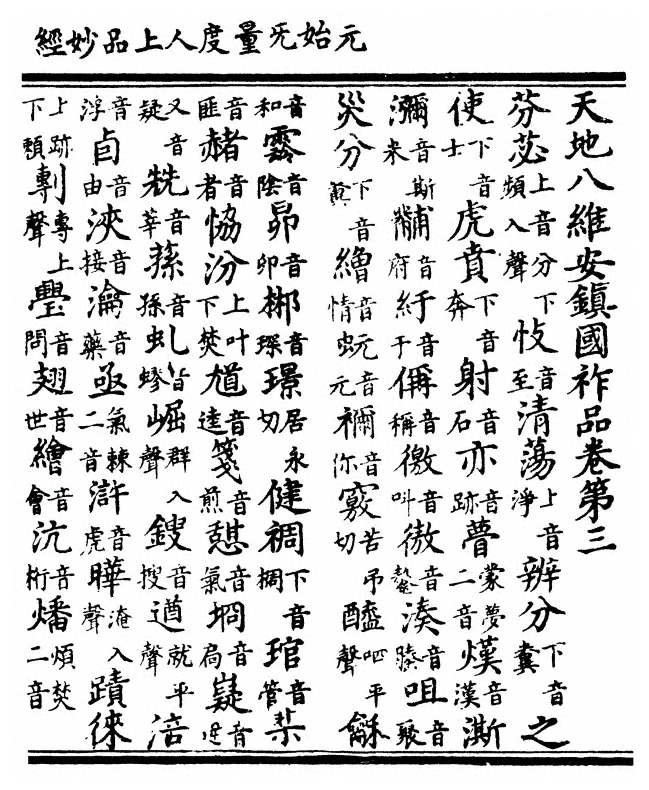 元始旡量度人上品妙經
天地八維安鎮國祚品卷第三
芬苾上音分下頻入聲忮音至清蕩上音淨辨分下音糞之
使下音士虎賁下音奔射音石亦音跡瞢蒙夢二音熯音漢澌
瀰音斯米黼音府紆音于偁音稱徼音叫音湊音腠咀音聚
災分下音繒音情蚖音元禰音你竅苦弔切醯呬平聲龢
音和霠音陰昴音卯郴音琛璟居永切健裯下音裯琯音管棐
音匪赭音者恊汾上叶下焚馗音逵箋音煎憇音氣坰音扃嶷音
又音疑兟音莘蓀音孫虬音蟉崛群入聲鎪音搜遒就平聲涪
音浮卣音由浹音接瀹音藥亟氣棘二音滸音虎曄淹入聲蹟徠
上跡下剸專上聲璺音問翅音世繪音會沆音桁燔煩焚二音